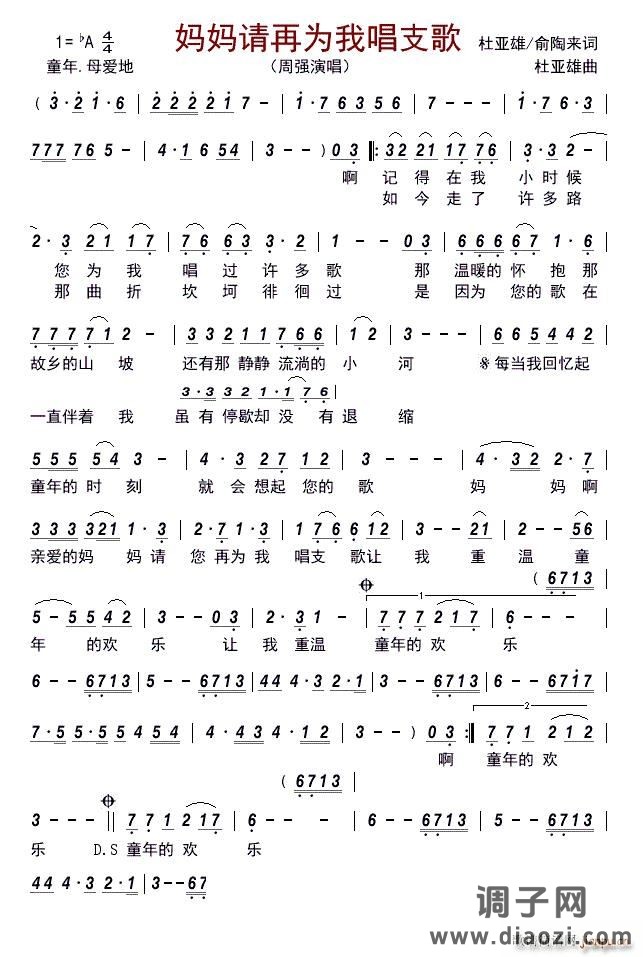 1=♭A 4/4 妈妈请再为我唱支歌 杜亚雄/俞陶来词
童年.母爱地 （周强演唱） 杜亚雄曲
( 3·2 1·6 | 2 2 2 2 1 7 6·7 | 1·7 6 3 5 6 | 7 - - - | 1·7 6·3
7 7 7 7 6 5 - | 4·1 6 5 4 | 3 - - ) 0 3 ‖: 3 2 2 1 1 7 7 6 | 3·3 2 -
啊 记 得 在 我 小 时 候
如 今 走 了 许 多 路
2·3 2 1 1 7 | 7 6 6 3 3·2 | 1 - 0 3 | 6 6 6 6 7 1·6
您 为 我 唱 过 许 多 歌 那 温暖的 怀 抱 那
那 曲 折 坎 坷 徘 徊 过 是 因为 您的 歌 在
7 7 7 7 1 2 - | 3 3 2 1 1 7 6 6 | 1 2 - | 6 6 5 4 4 2
故乡的 山 坡 还有那 静静 流淌的 小 河 𝄋每当我回忆起
3·3 3 2 1·1 7 6
一直伴着 我 虽 有 停歇却 没 有 退 缩
5 5 5 5 4 3 - | 4·3 2 7 1 2 | 3 - - - | 4·3 2 2·7
童年的 时 刻 就 会 想起 您的 歌 妈 妈 啊
3 3 3 3 2 1 1·3 | 2·3 1 7·3 | 1 7 6 6 1 2 | 3 - - 2 1 | 2 - - 5 6
亲爱的妈 妈 请 您 再为 我 唱支 歌让 我 重 温 童
( 6 7 1 3
5 - 5 5 4 2 | 3 - - 0 3 | 2·3 1 2 | 7 7 7 7 2 1 7 | 6 - - -
年 的欢 乐 让 我 重温 童年的 欢 乐
6 - - 6 7 1 3 | 5 - - 6 7 1 3 | 4 4 4 3 2·1 | 3 - - 6 7 1 3 | 6 - - 6 7 1 7
7·5 5·5 5 5 4 5 4 | 4·3 4 3·1 2 | 3 - - ) 0 3 :‖ 7 7 1 2 1 2
啊 童年的 欢
( 6 7 1 3
3 - - - ‖ 7 7 1 2 1 7 | 6 - - | 6 - - 6 7 1 3 | 5 - - 6 7 1 3
乐 D.S 童年的 欢 乐
4 4 4 3 2·1 | 3 - - 6 7
调子网
www.diaozi.com